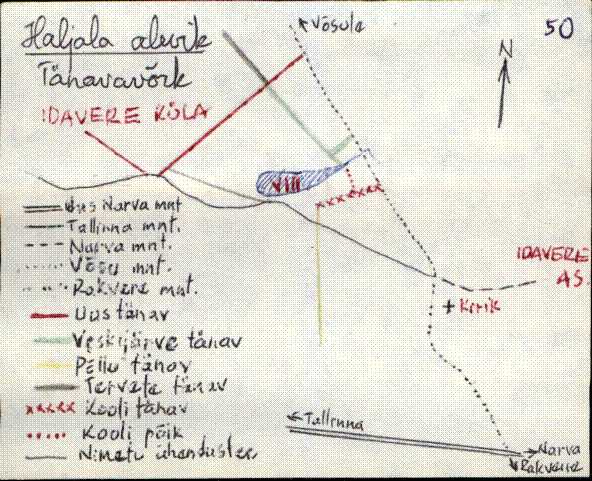 50
Haljala alevik
Tänavavõrk
Võsule
N
IDAVERE KÜLA
VIII
Uus Narva mnt
Tallinna mnt.
Narva mnt.
Võsu mnt.
Rakvere mnt.
Uus tänav
Veskijärve tänav
Põllu tänav
Tervete tänav
Kooli tänav
Kooli põik
Nimetu ühendustee
IDAVERE
AS.
Kirik
Tallinna
Narva
Rakvere